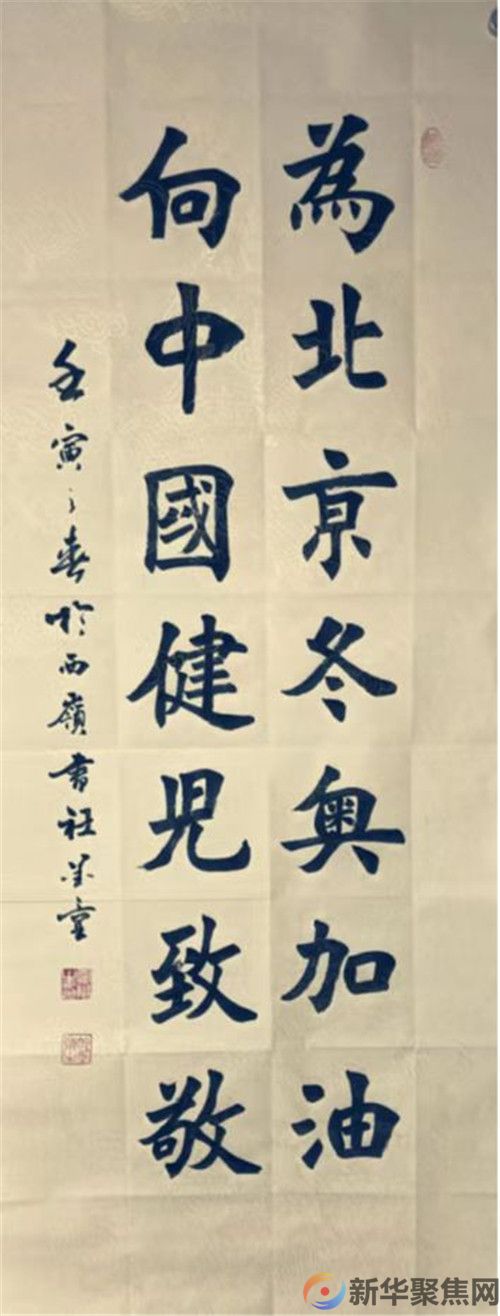 為北京冬奥加油
向中國健児致敬
壬寅之春於西嶺書
新华聚焦网